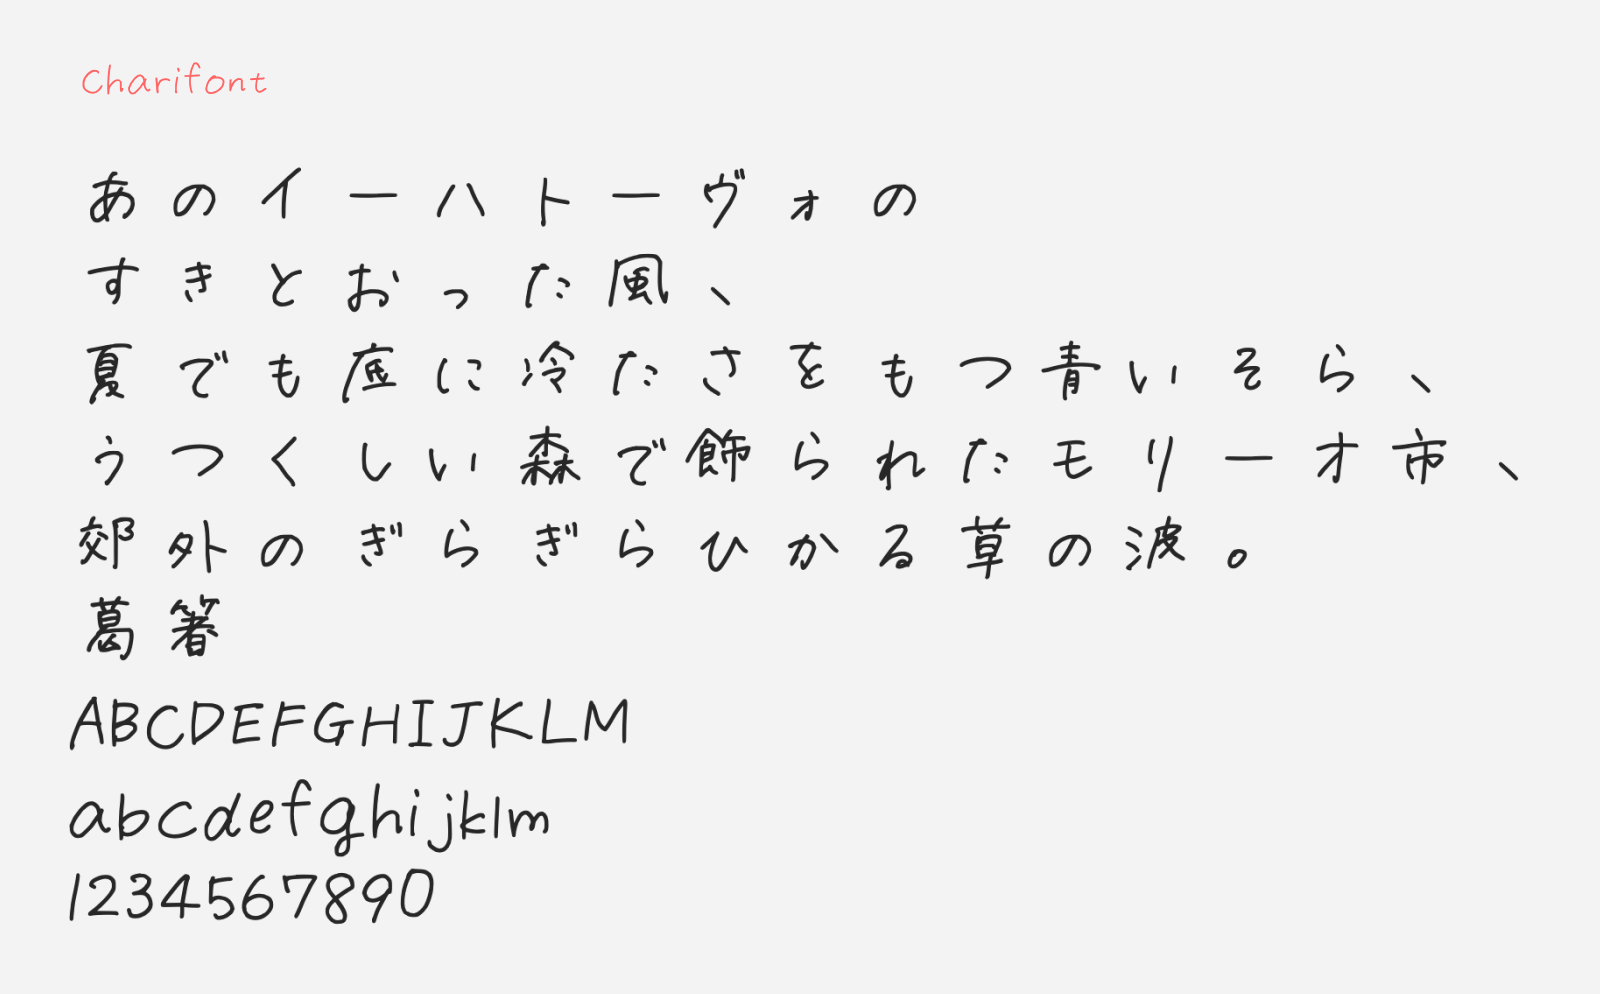 Charifont
あのイーハトーヴォの
すきとおった風、
夏でも底に冷たさをもつ青いそら、
うつくしい森で飾られたモリーオ市、
郊外のぎらぎらひかる草の波。
葛箸
ABCDEFGHIJKLM
abcdefghijklm
1234567890